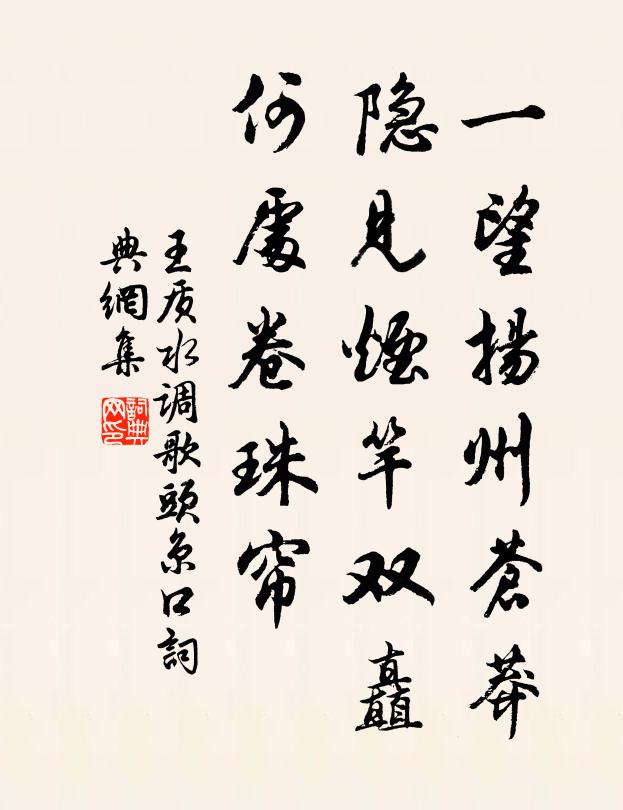 一望揚州蒼莽
隐見煙竿双矗
何處卷珠帘
王质水调歌頭京口詞
典網集
詞典
网印